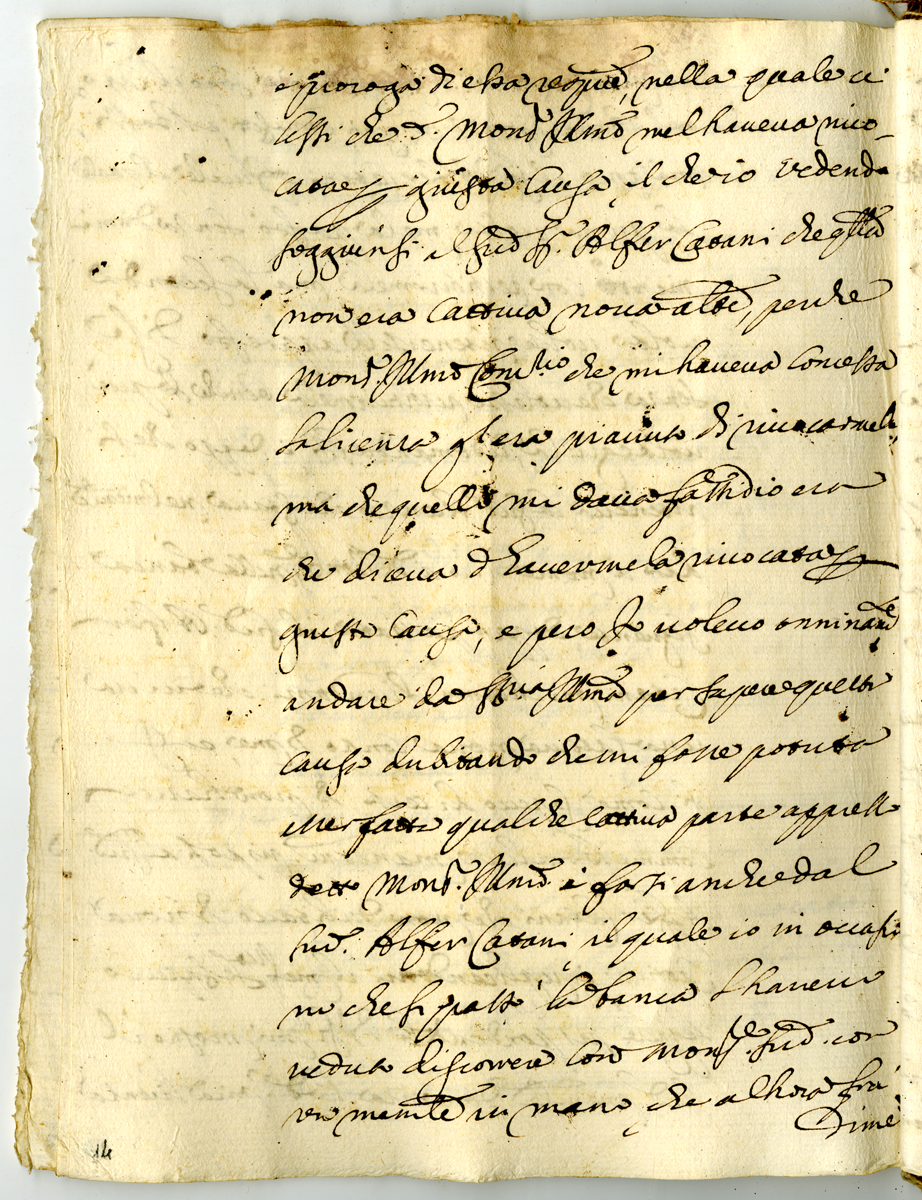 proroga di essa nella quale ci
lessi che d. Mons. Illmo me l haveva rivo-
cata giusta causa, il che io vedendo
soggiunsi al sud. Sr. Alfier Catani che
non era cattiva nova perche
Mons. Illmo che mi haveva concessa
la licenza era di rivocarmela,
ma che quello mi dava fastidio era
che diceva d havermela rivocata
giusta causa, e pero Io volevo onninamte
andare da Illma per sapere questa
causa dubitando che mi fosse potuta
esser fatta qualche cattiva parte appresso
detto Mons. Illmo e forsi anche dal
sud. Alfier Catani, il quale io in occasio
ne che si la banca l havevo
veduto discorrere con Mons. sud. con
un in mano che alhora fra
di me
14